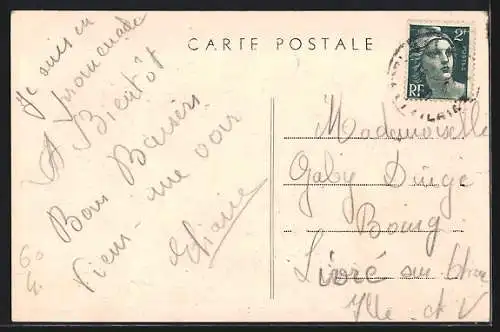 CARTE POSTALE
2F
POSTES
RF
Je suis en
promenade
A Bientôt
Bons Baisers
Viens me voir
Eliane
Mademoiselle
Gaby Dinge
Bourg
Livré sur
Ille et V